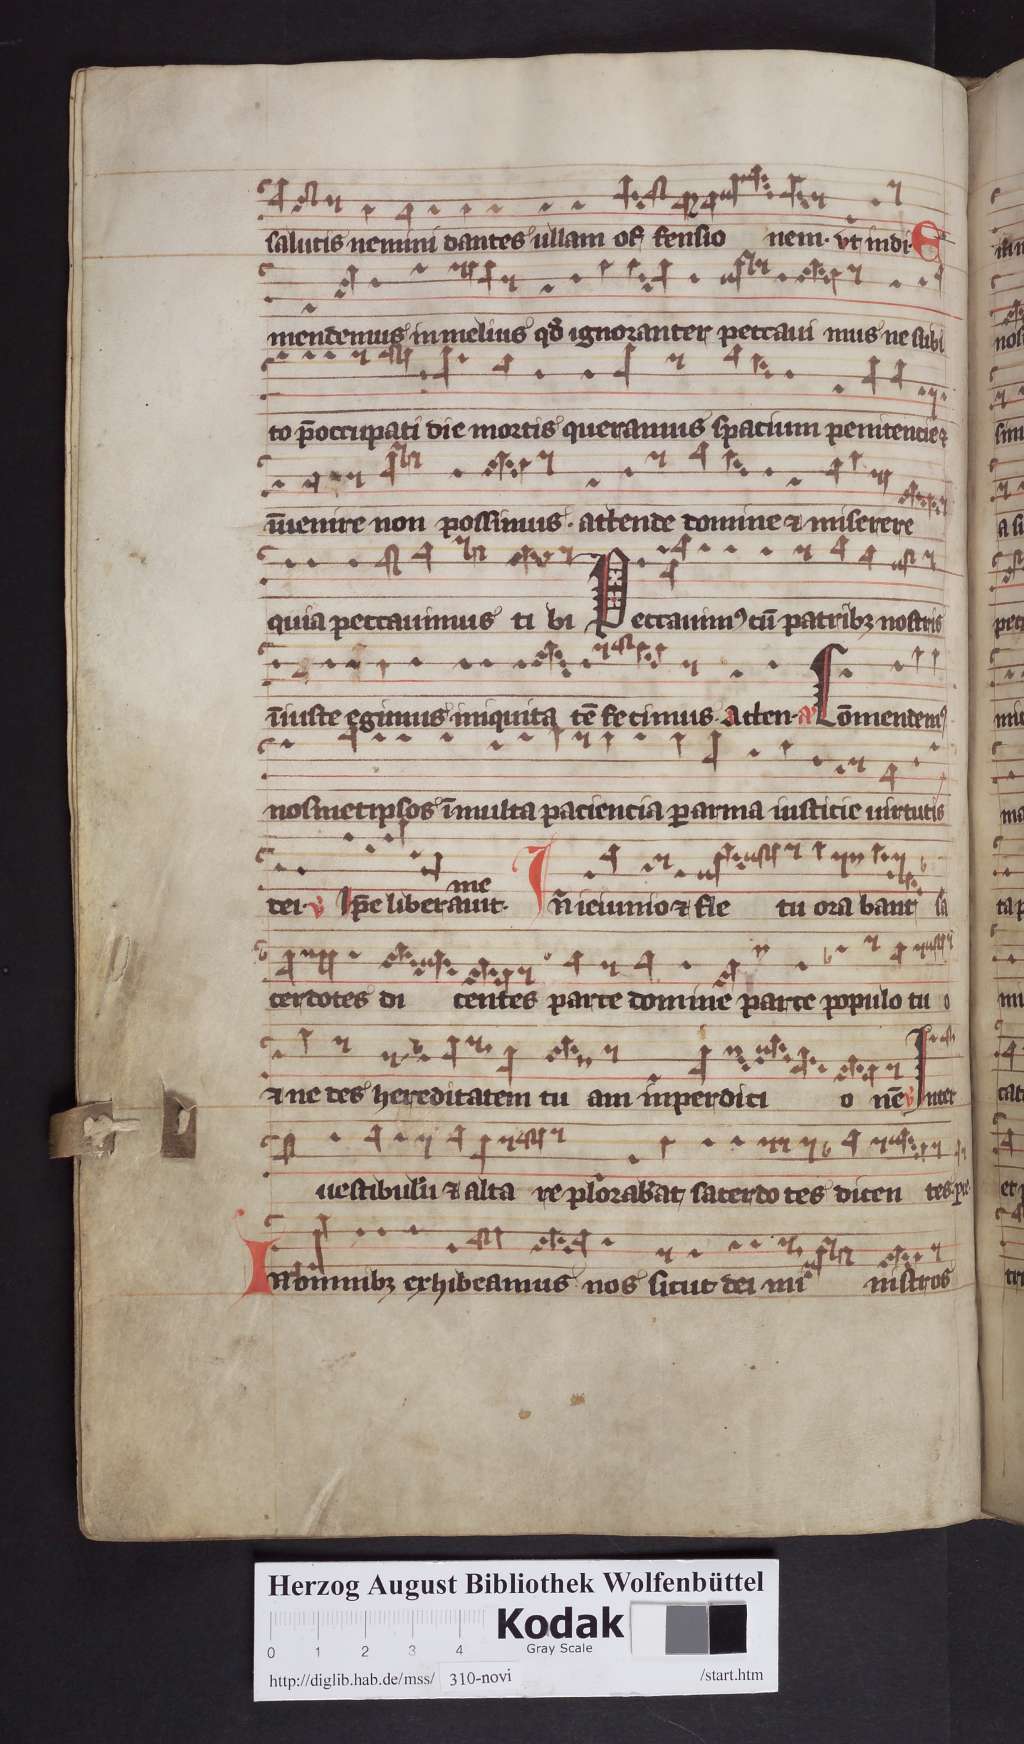 salutis nemini dantes ullam of fensio nem. vt indi. E
mendemus in melius qd̄ ignoranter peccaui mus ne subi
to p̄occupati die mortis queramus spacium penitencie ⁊
īuenire non possimus. attende domine ⁊ miserere
quia peccauimus ti bi Peccauimꝰ cū patribꝫ nostris
īiuste egimus iniquita tē fecimus. Atten. Cōmendemꝰ
nosmetipsos ī multa paciencia ꝑ arma iusticie uirtutis
dei. v Ip̄e liberauit me. In̄ ieiunio ⁊ fle tu ora bant sa
cerdotes di centes parce domine parce populo tu o
⁊ ne des hereditatem tu am in perditi o nē v Inter
uestibulū ⁊ alta re plorabāt sacerdo tes dicen tes. par
In omnibꝫ exhibeamus nos sicut dei mi nistros
Herzog August Bibliothek Wolfenbüttel
Kodak
Gray Scale
0 1 2 3 4
http://diglib.hab.de/mss/ 310-novi /start.htm